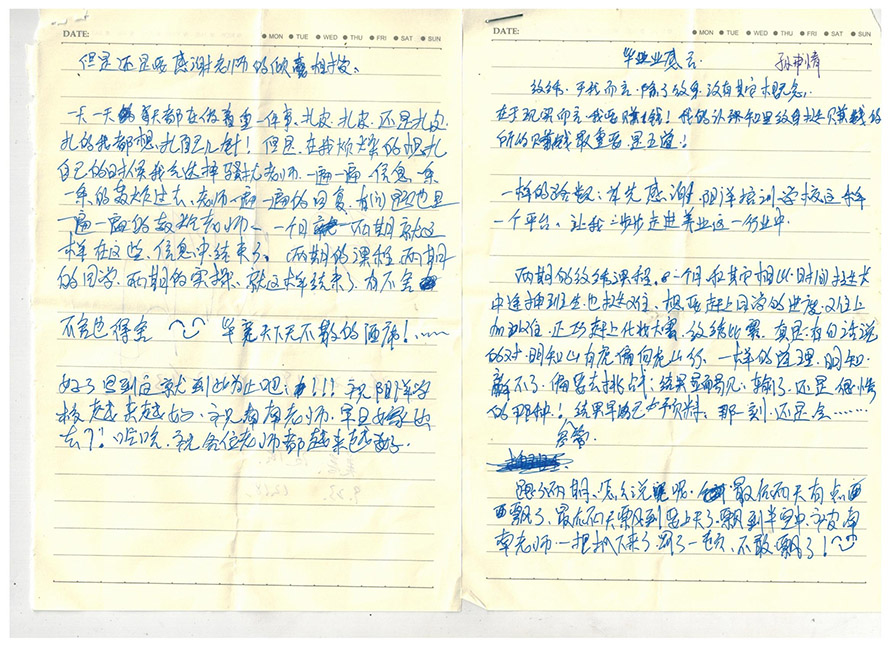 DATE:
MON TUE WED THU FRI SAT SUN
但是还是要感谢老师的倾囊相授。
一天一天每天都在做着重一件事、扎皮、扎皮、还是扎皮
扎的我都想扎自己几针！但是、在我烦燥的想扎
自己的时候我会选择骚扰老师、一遍一遍信息、一条
一条的轰炸过去、老师一遍一遍的回复、有问题也是
一遍一遍的教 老师、一个月 两期就这
样在这些、信息中结束了、两期的课程两期
的同学、两期的实操、就这样结束了、有不舍
不舍也得舍 毕竟天下无不散的酒席！……
好了 唠到这就到此为止吧！！！祝阳洋学
校越来越好、祝 南老师、早日嫁出
去？！哈哈、祝各位老师都越来越好.
DATE:
MON TUE WED THU FRI SAT SUN
毕业感言. 孙
纹绣、于我而言、除了纹身没有其它概念.
在于现实而言、我要赚钱！我的认知里纹身找赚钱的
所以赚钱最重要、是王道！
一样的路数：首先感谢、阳洋培训学校这样
一个平台、让我一步步走进美业这一行业中.
两期的纹绣课程、一个月、和其它相比、时间 长
中途插班生也 难、极要赶上同学的进度、难上
加难、还巧赶上化妆大赛、纹绣比赛、真是有句话说
的对、明知山有虎偏向虎山行、一样的道理、明知
赢不了、偏要去挑战；结果显而易见、输了、还是很惨
的那种！结果早就已在预料、那一刻、还是会……
跟了两期、怎么说呢呢、最后两天有点
飘了、最后两天飘到要上天了、飘到半空中、被南
南老师一把抓下来了、罚了一 、不敢飘了！